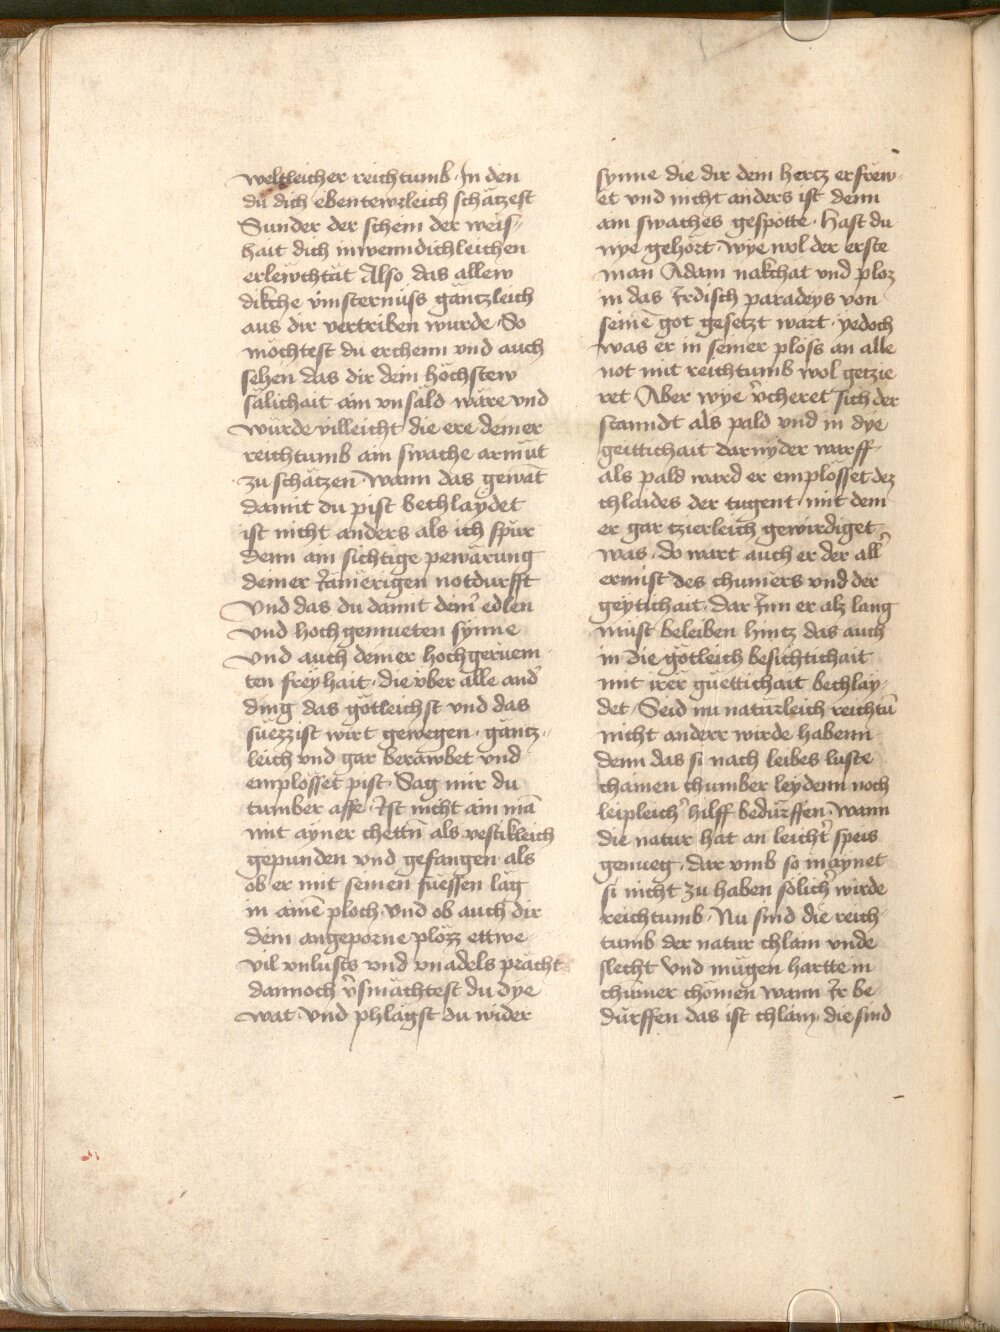 weltleicher reichtumb · In den
du dich ebentewrleich schätzest
Sunder der schein der weis-
hait dich inwenndichleichen
erlewchtät Also das allew
dikche vinsternüss gäntzleich
aus dir vertriben wurde · So
möchtest du erchenn vnd auch
sehen das dir dein höchstew
sälichait ain vnsäld wäre vnd
wurde villeicht die ere deiner
reichtumb ain swache armüt
zu schätzen · Wann das gewāt
damit du pist bechlaydet
ist nicht anders als ich spür
denn ain sichtige pewärung
deiner Iämerigen notdurfft
Vnd das du damit deinē edlen
vnd hochgemueten synne
vnd auch deiner hochgeruem
ten freyhait · die vber alle and̉
ding das götleichst vnd das
süezzist wirt gewegen · gäntz-
leich vnd gar berawbet vnd
emplösset pist · Sag mir du
tumber affe · Ist nicht ain mā
mit ayner chettn̄ als vestikleich
gepunden vnd gefangen · als
ob er mit seinen füessen läg
in ainē ploch · Vnd ob auch dir
dein angeporne plözz ettwe
vil vnlusts vnd vnadels prächt
dannoch v̉smächtest du dye
wat · Vnd phlägst du wider
synne die dir dein hertz erfrew-
et vnd nicht anders ist denn
ain swaches gespötte · Hast du
nye gehört · Wye wol der erste
man Adam nakchat vnd ploz
in das Irdisch paradeys von
seinē got gesetzt wart · yedoch
was er in seiner plöss an alle
not mit reichtumb wol getzie
ret Aber wye v̉cheret sich der
stanndt als pald vnd in dye
geittichait darnyder warff
als pald ward er emplösset dez
chlaides der tugent · mit dem
er gar tzierleich gewirdiget
was · do wart auch er der all̉
ermist des chumērs vnd der
geytichait · Dar Inn er alz lang
müst beleiben hintz das auch
in die götleich besichtichait
mit irer guettichait bechlay-
det · Seid nu natürleich reichtū
nicht anderr wirde habenn
denn das si nach leibes luste
chainen chumber leydenn noch
leipleich̉ hilff bedürffen · Wann
die natur hat an leicht̉ speis
genueg · Dar vmb so maynet
si nicht zu haben sölich̉ wirde
reichtumb · Nu sind die reich
tumb der natur chlain vnde
slecht Vnd mügen hartte in
chumer chömen wann Ir be
dürffen das ist chlain · die sind